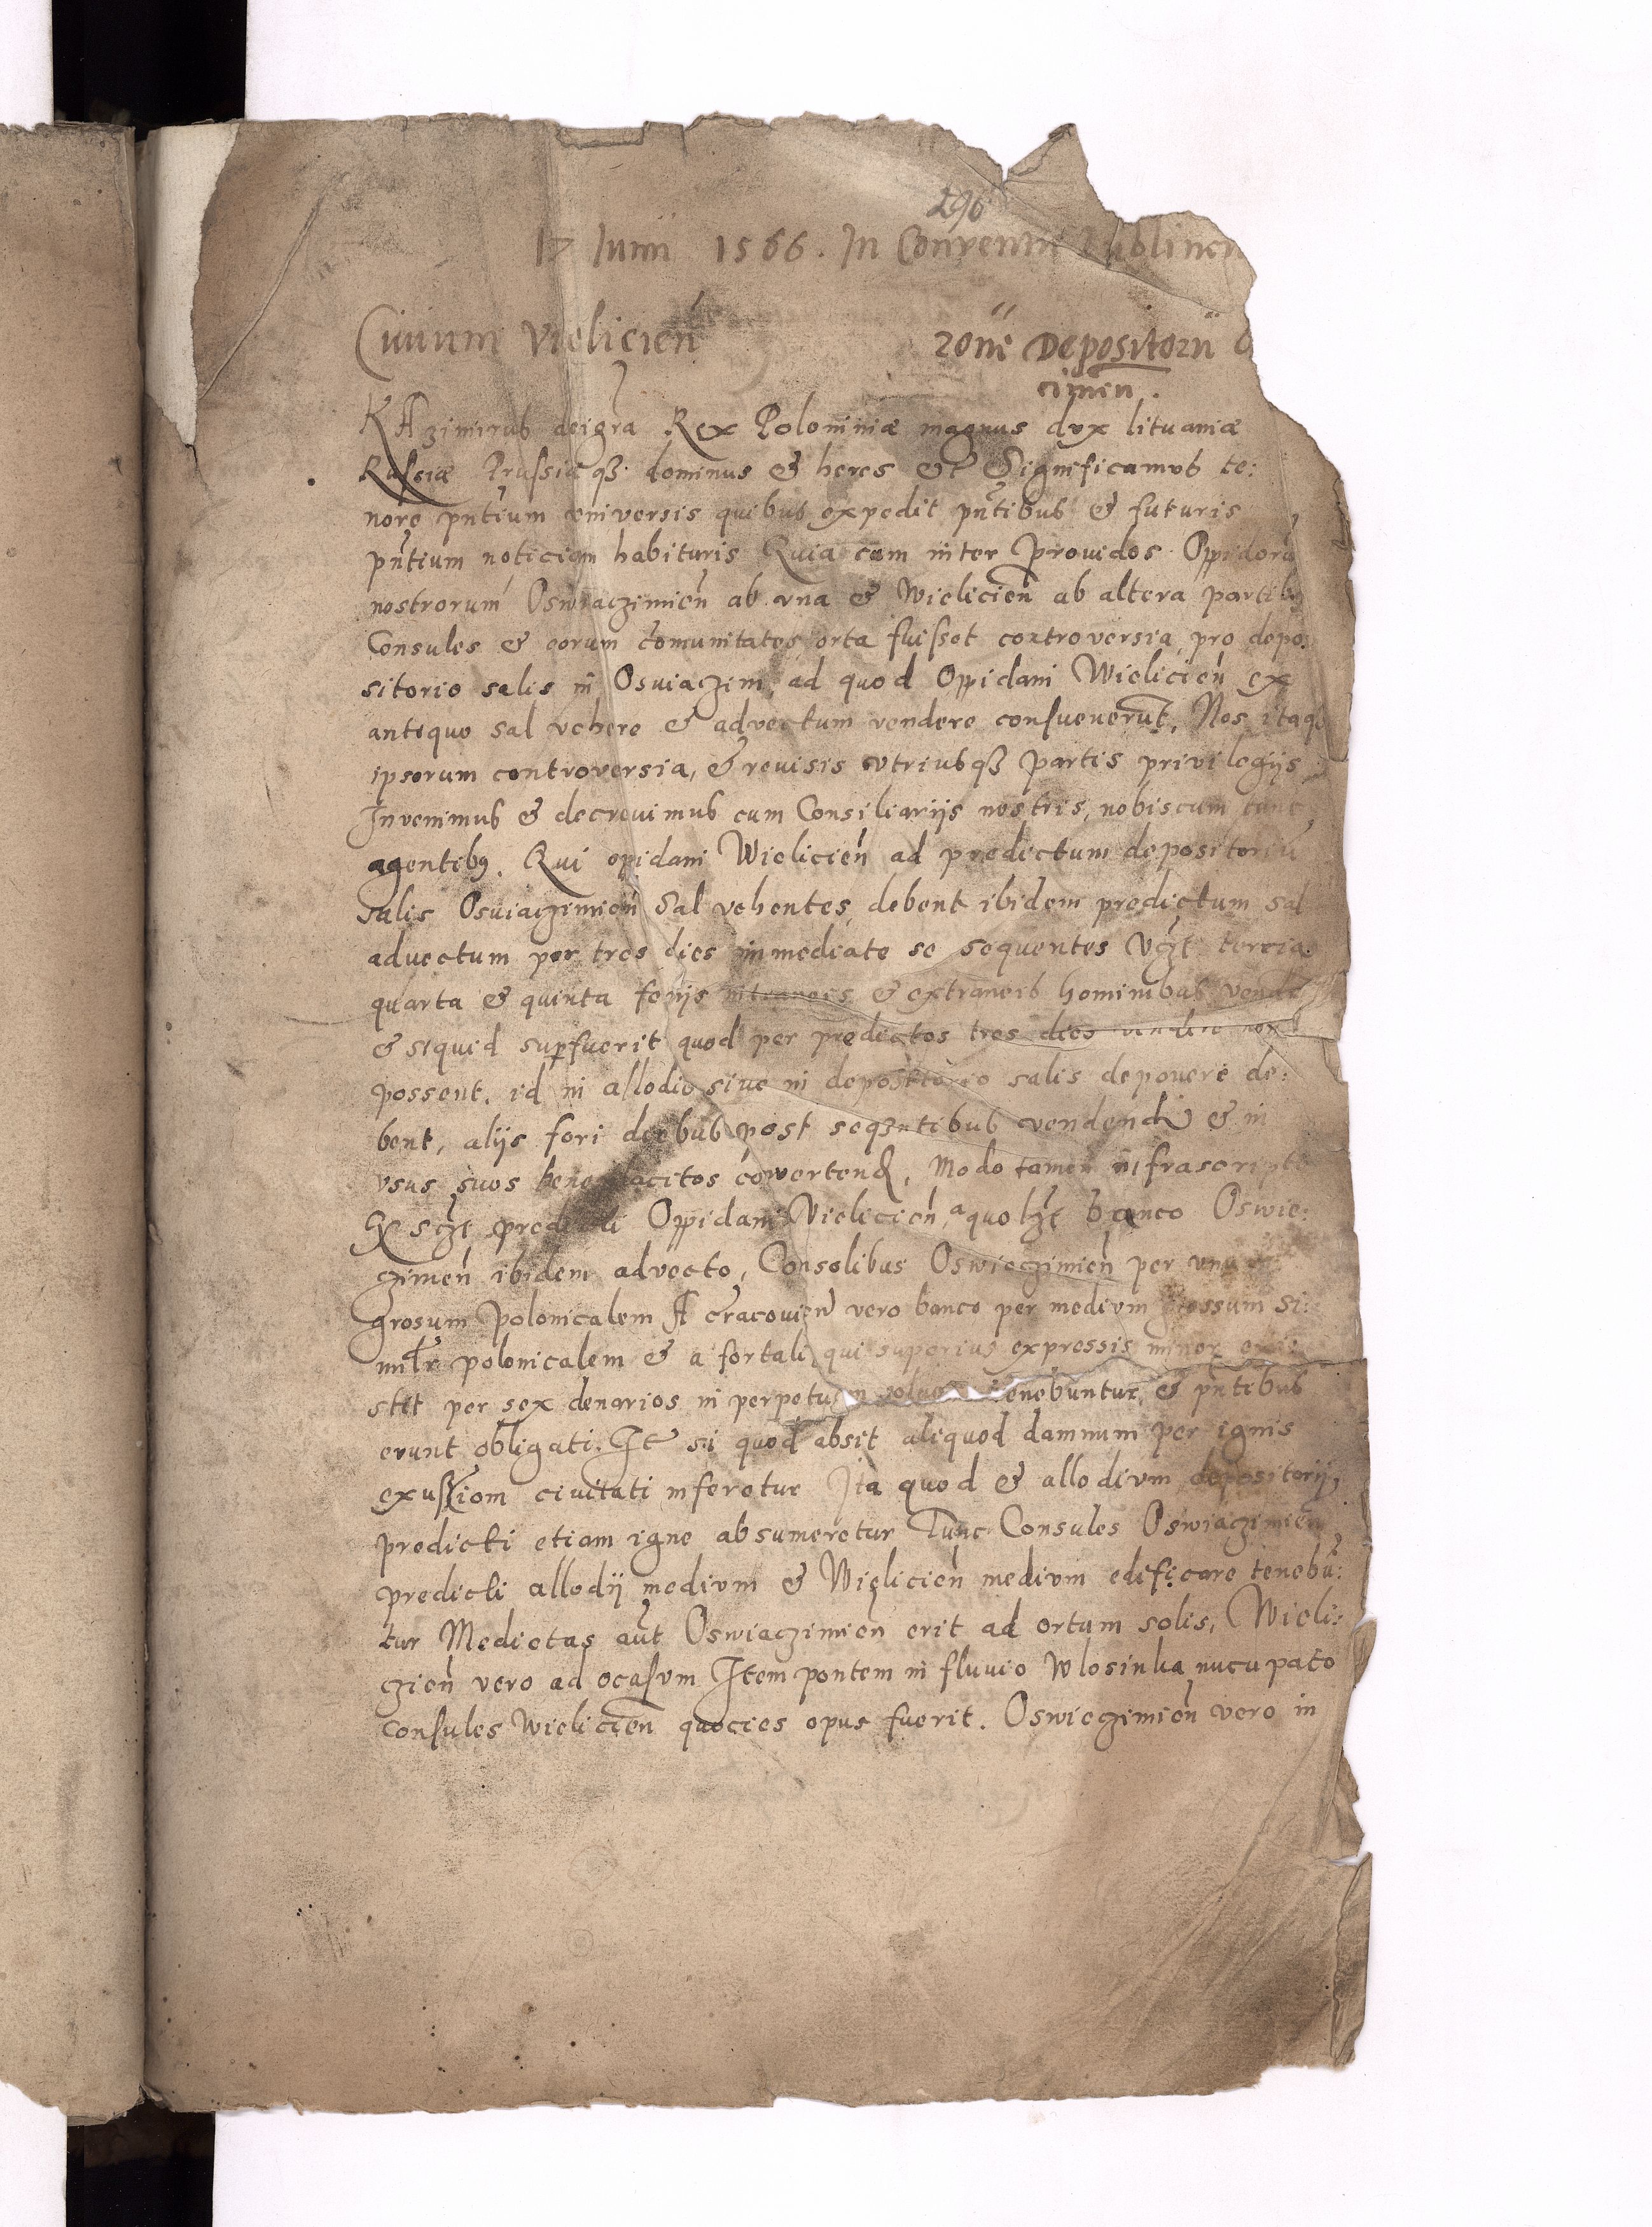 296
17 Junii 1566. In Conventu Lublinen
Civium Vielicien̄ rone Depositorii
cimen.
KAzimirus dei gra Rex Poloniniæ magnus dux lituaniæ
Russiæ Prussiæqȝ dominus & heres &c Significamus te:
nore pn̄tium universis quibus expedit pn̄tibus & futuris
pn̄tium noticiam habituris Quia cum inter Providos Oppidorū
nostrorum Oswiaczimien̄ ab vna & Wielicien̄ ab altera partibus
Consules & eorum com̄unitates orta fuisset controversia pro depo:
sitorio salis in Osviaczim, ad quod Oppidani Wielicien̄ ex
antiquo sal vehere & advectum vendere consueuerut, Nos itaqȝ
ipsorum controversia, & revisis vtriusqȝ partis privilegijs
Invenimus & decrevimus cum Consiliarijs nostris, nobiscum tunc
agentibȝ. Qui opidani Wielicien̄ ad predictum depositoriū
salis Osviaczimien̄ Sal vehentes, debent ibidem predictum sal
advectum per tres dies immediate se sequentes Vczt tercia
quarta & quinta ferijs intraneis & extraneis hominibus vende
& siquid supfuerit quod per predictos tres dies vendere non
possent, id in allodio sive in depositorio salis deponere de:
bent, alijs fori diebus post seqȝntibus vendend & in
vsus suos beneplacitos cōvertend, Modo tamen infrascripto
Qx sczt predicti Oppidani Vielicien̄, a quolzt banco Oswie:
czimen̄ ibidem advecto, Consolibus Oswieczimien̄ per vnū
grosum Polonicalem A cracovien̄ vero banco per medium grossum si:
milr polonicalem & a fortali qui superius expressis minor exi:
stit per sex denarios in perpetuum solvere tenebuntur & pn̄tibus
erunt obligati. Itē si quod absit aliquod damnum per ignis
exustiom civitati inferetur Ita quod & allodium depositorij
predicti etiam igne absumeretur Tunc Consules Oswiaczimien̄
predicti allodij medium & Wielicien̄ medium edificare tenebū:
tur Medietas aut̄ Oswiaczimien̄ erit ad ortum solis, Wieli:
czien̄ vero ad ocasum Item pontem in fluvio Wlosinka nucupato
consules Wielicien̄ quocies opus fuerit. Oswieczimien̄ vero in